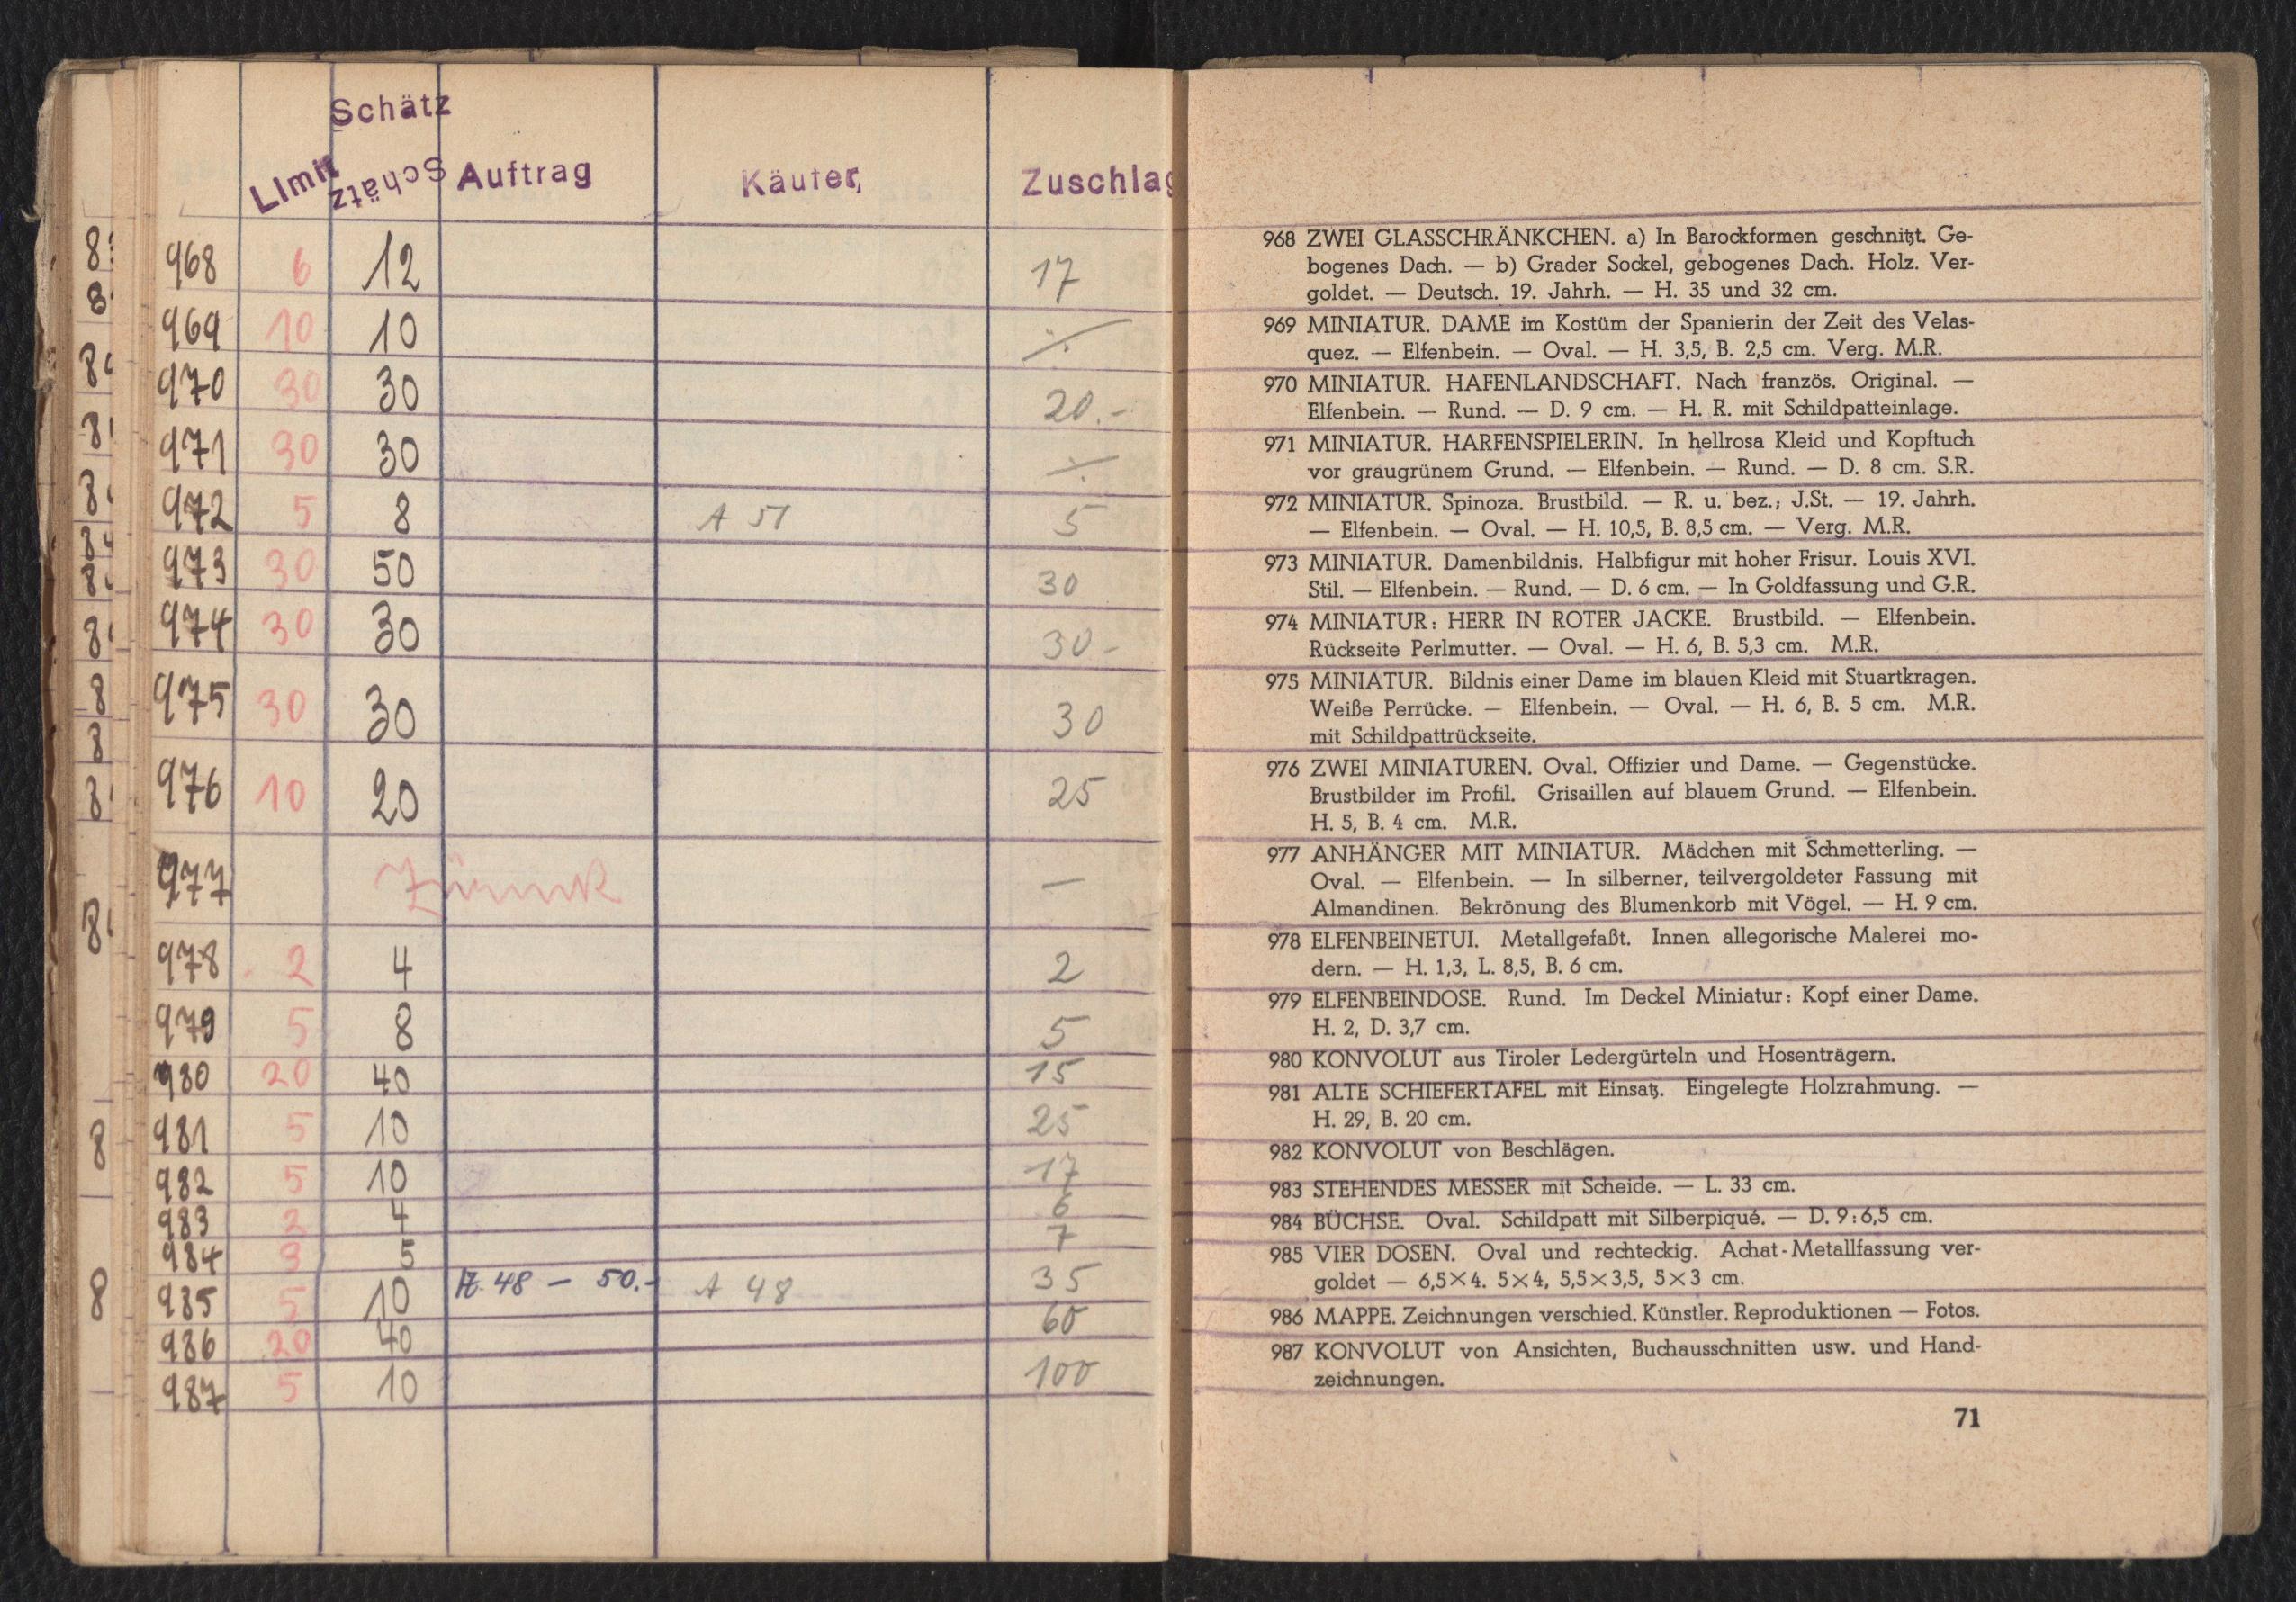 Schätz
Limit Schätz Auftrag Käufer, Zuschlag
968 6 12 17
969 10 10 ./.
970 30 30 20.-
971 30 30 ./.
972 5 8 A 51 5
973 30 50 30
974 30 30 30-
975 30 30 30
976 10 20 25
977 Zurück —
978 2 4 2
979 5 8 5
980 20 40 15
981 5 10 25
982 5 10 17
983 2 4 6
984 3 5 7
985 5 10 A 48 — 50.- A 48 35
986 20 40 60
987 5 10 100
968 ZWEI GLASSCHRÄNKCHEN. a) In Barockformen geschnitzt. Ge-
bogenes Dach. — b) Grader Sockel, gebogenes Dach. Holz. Ver-
goldet. — Deutsch. 19. Jahrh. — H. 35 und 32 cm.
969 MINIATUR. DAME im Kostüm der Spanierin der Zeit des Velas-
quez. — Elfenbein. — Oval. — H. 3,5, B. 2,5 cm. Verg. M.R.
970 MINIATUR. HAFENLANDSCHAFT. Nach französ. Original. —
Elfenbein. — Rund. — D. 9 cm. — H. R. mit Schildpatteinlage.
971 MINIATUR. HARFENSPIELERIN. In hellrosa Kleid und Kopftuch
vor graugrünem Grund. — Elfenbein. — Rund. — D. 8 cm. S.R.
972 MINIATUR. Spinoza. Brustbild. — R. u. bez.; J.St. — 19. Jahrh.
— Elfenbein. — Oval. — H. 10,5, B. 8,5 cm. — Verg. M.R.
973 MINIATUR. Damenbildnis. Halbfigur mit hoher Frisur. Louis XVI.
Stil. — Elfenbein. — Rund. — D. 6 cm. — In Goldfassung und G.R.
974 MINIATUR: HERR IN ROTER JACKE. Brustbild. — Elfenbein.
Rückseite Perlmutter. — Oval. — H. 6, B. 5,3 cm. M.R.
975 MINIATUR. Bildnis einer Dame im blauen Kleid mit Stuartkragen.
Weiße Perrücke. — Elfenbein. — Oval. — H. 6, B. 5 cm. M.R.
mit Schildpattrückseite.
976 ZWEI MINIATUREN. Oval. Offizier und Dame. — Gegenstücke.
Brustbilder im Profil. Grisaillen auf blauem Grund. — Elfenbein.
H. 5, B. 4 cm. M.R.
977 ANHÄNGER MIT MINIATUR. Mädchen mit Schmetterling. —
Oval. — Elfenbein. — In silberner, teilvergoldeter Fassung mit
Almandinen. Bekrönung des Blumenkorb mit Vögel. — H. 9 cm.
978 ELFENBEINETUI. Metallgefaßt. Innen allegorische Malerei mo-
dern. — H. 1,3, L. 8,5, B. 6 cm.
979 ELFENBEINDOSE. Rund. Im Deckel Miniatur: Kopf einer Dame.
H. 2, D. 3,7 cm.
980 KONVOLUT aus Tiroler Ledergürteln und Hosenträgern.
981 ALTE SCHIEFERTAFEL mit Einsatz. Eingelegte Holzrahmung. —
H. 29, B. 20 cm.
982 KONVOLUT von Beschlägen.
983 STEHENDES MESSER mit Scheide. — L. 33 cm.
984 BÜCHSE. Oval. Schildpatt mit Silberpiqué. — D. 9:6,5 cm.
985 VIER DOSEN. Oval und rechteckig. Achat-Metallfassung ver-
goldet — 6,5×4. 5×4, 5,5×3,5, 5×3 cm.
986 MAPPE. Zeichnungen verschied. Künstler. Reproduktionen — Fotos.
987 KONVOLUT von Ansichten, Buchausschnitten usw. und Hand-
zeichnungen.
71